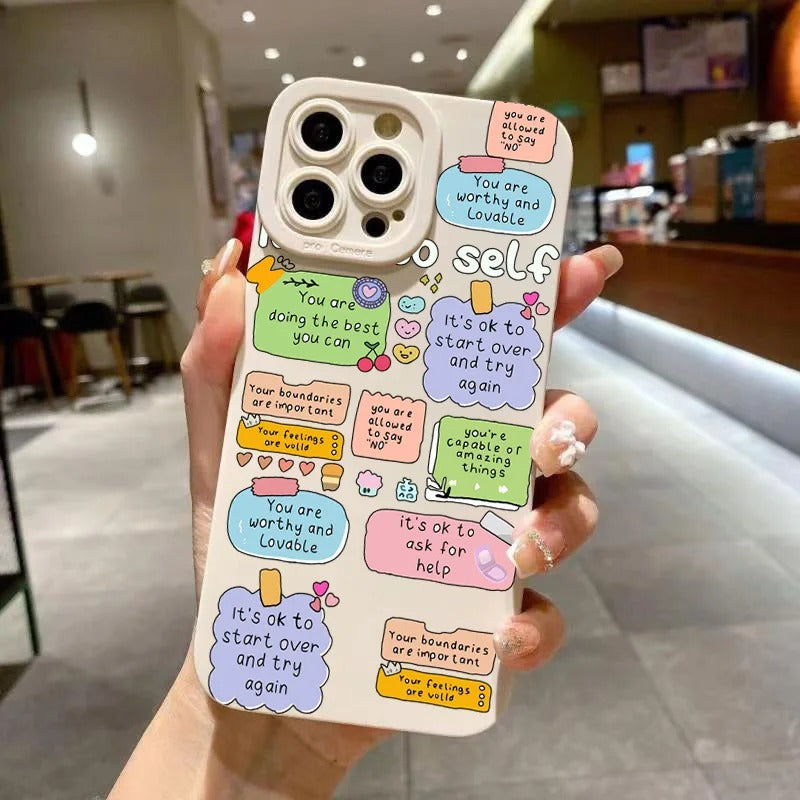 you are
allowed
to say
"NO"
You are
worthy and
Lovable
pro Camera
o self
You are
doing the best
you can
It's ok to
start over
and try
again
Your boundaries
are important
Your feelings
are valid
you are
allowed
to say
"NO"
you're
capable of
amazing
things
You are
worthy and
Lovable
it's ok to
ask for
help
It's ok to
start over
and try
again
Your boundaries
are important
Your feelings
are valid